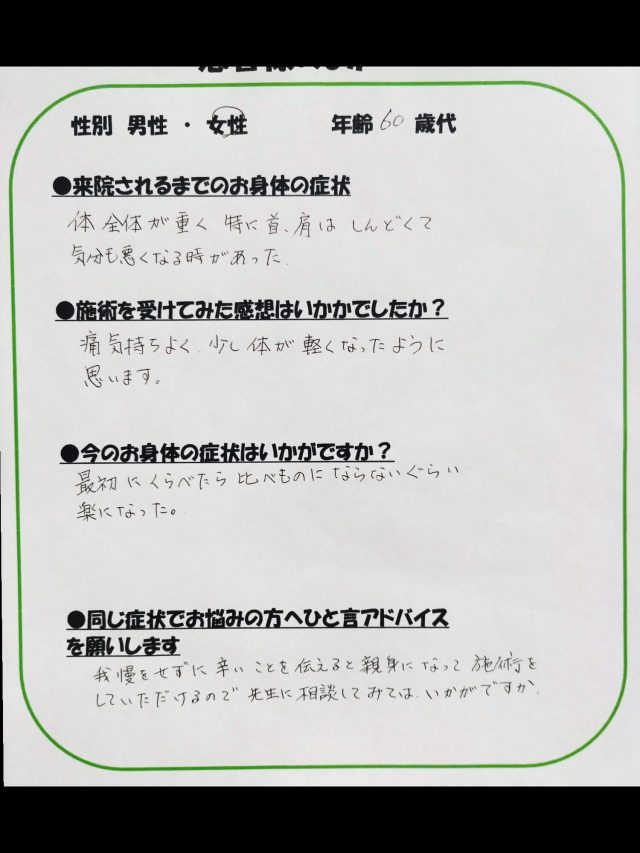 性別 男性 ・ 女性 年齢 60 歳代
●来院されるまでのお身体の症状
体全体が重く 特に首、肩は しんどくて
気分も悪くなる時があった。
●施術を受けてみた感想はいかかでしたか？
痛気持ちよく、少し体が軽くなったように
思います。
●今のお身体の症状はいかがですか？
最初にくらべたら比べものにならないぐらい
楽になった。
●同じ症状でお悩みの方へひと言アドバイス
を願いします
我慢をせずに辛いことを伝えると親身になって施術を
していただけるので 先生に相談してみては、いかがですか。